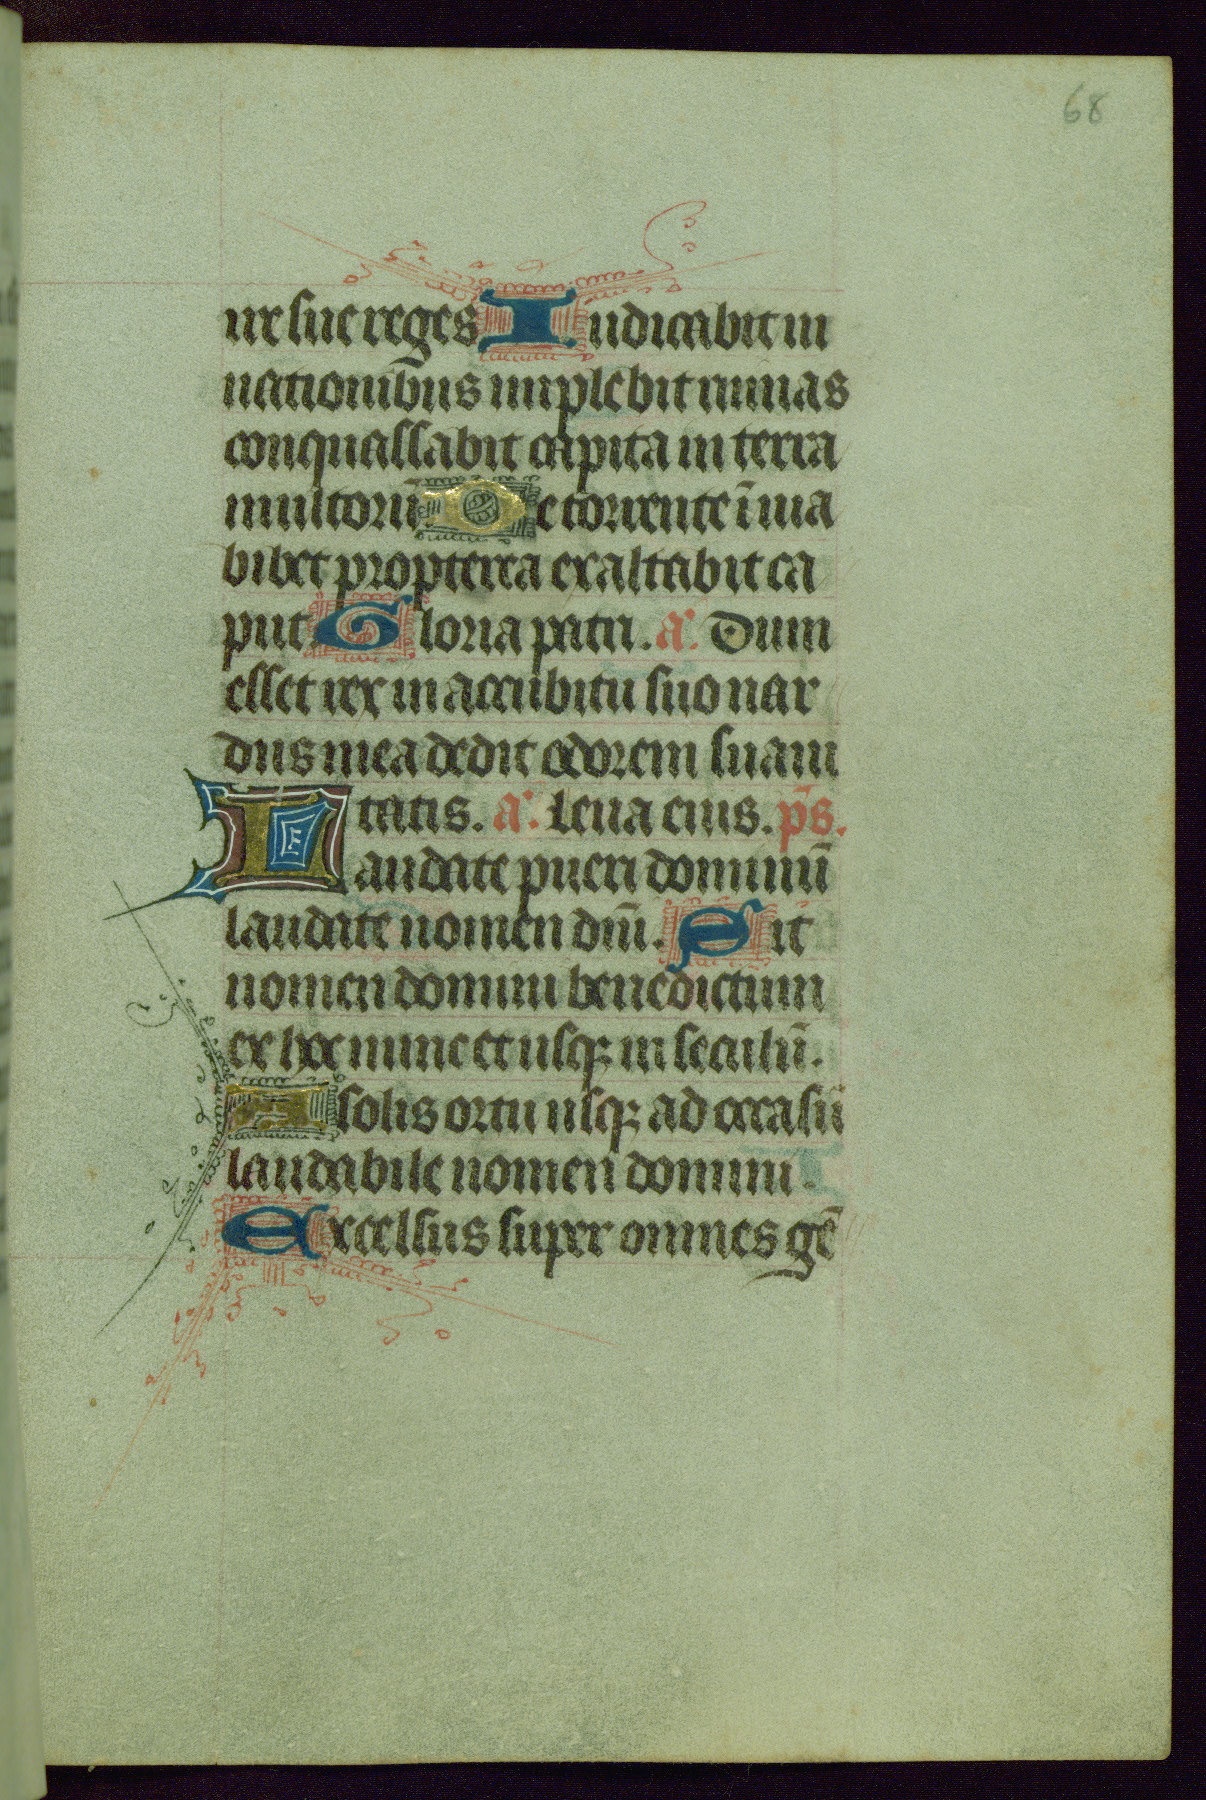 68
ire sue reges Iudicabit in
nationibus implebit ruinas
conquassabit capita in terra
multorū. De torrente ī uia
bibet propterea exaltabit ca
put. Gloria patri. a'. Dum
esset rex in accubitu suo nar
dus mea dedit odorem suaui
tatis. a'. Leua eius. p̄s.
Laudate pueri dominū
laudate nomen dn̄i. Sit
nomen domini benedictum
ex hoc nunc et usqꝫ in seculū.
A solis ortu usqꝫ ad occasū
laudabile nomen domini.
Excelsus super omnes gē